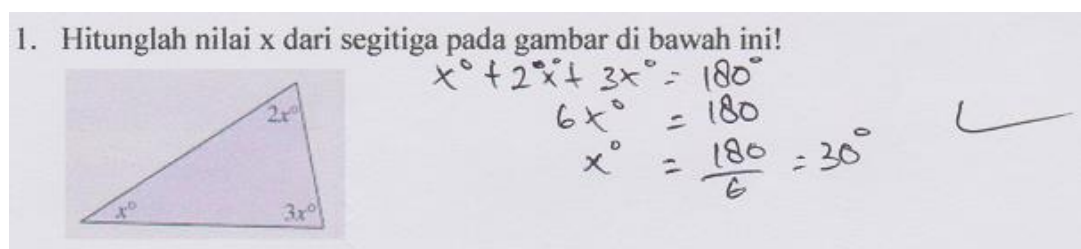 1. Hitunglah nilai x dari segitiga pada gambar di bawah ini!
x° + 2°x° + 3x° = 180°
6x° = 180
x° = 180/6 = 30°
2x°
x°
3x°